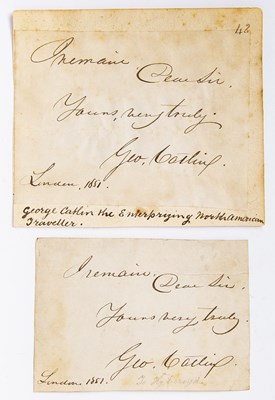 48
I remain
Dear Sir.
Yours, very truly.
Geo. Catlin.
London, 1851.
George Catlin the Enterprizing North American
Traveller.
I remain,
Dear Sir.
Yours very truly.
Geo. Catlin.
London 1851.